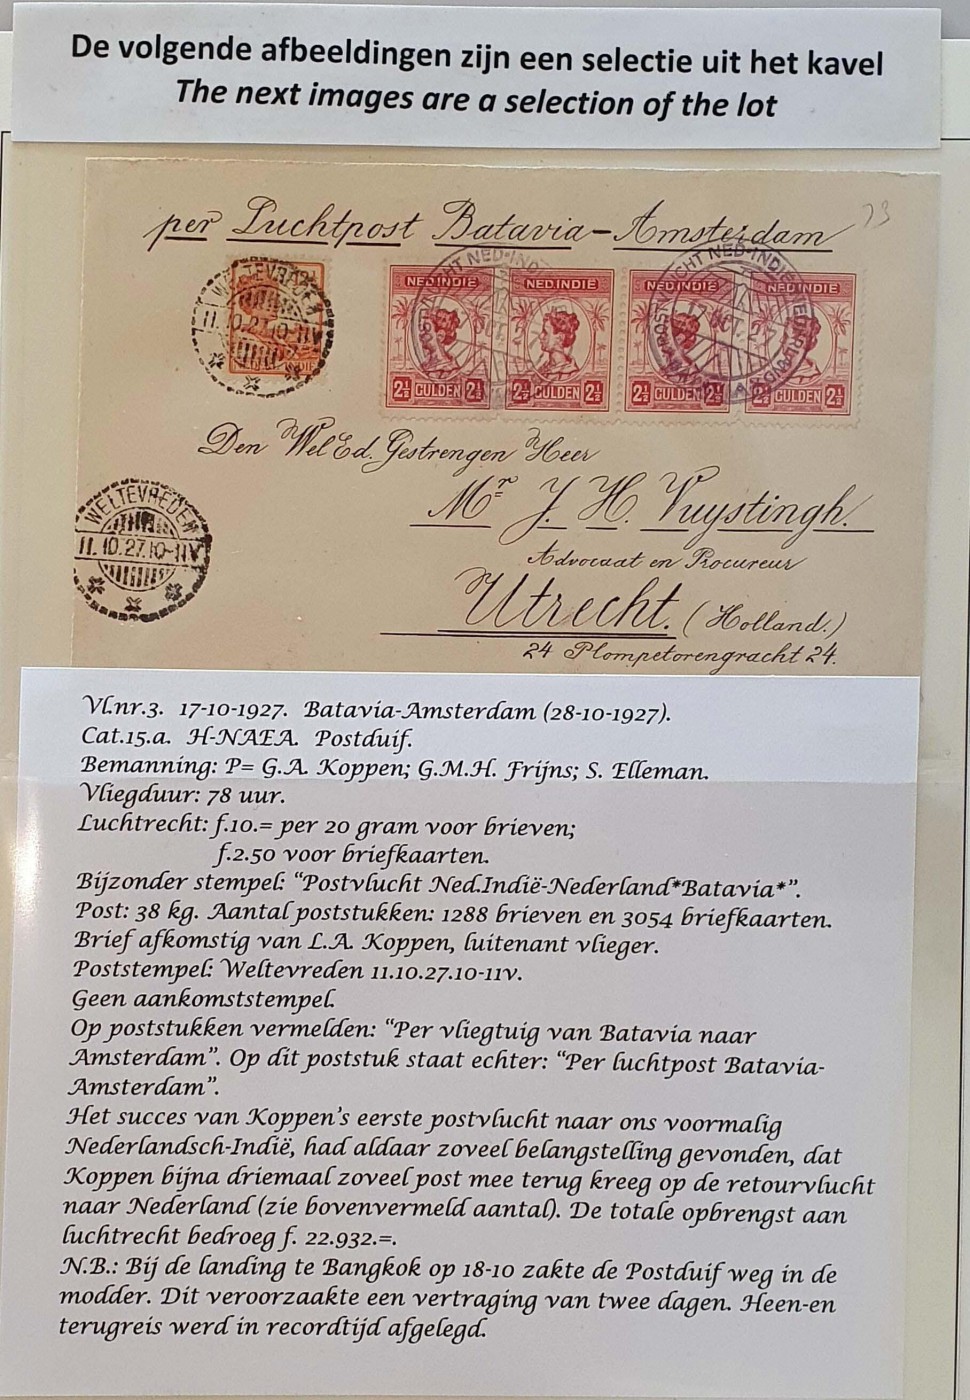 De volgende afbeeldingen zijn een selectie uit het kavel
The next images are a selection of the lot
73
per Luchtpost Batavia-Amsterdam
WELTEVREDEN
11.10.27.10-11V
NED.INDIE NED.INDIE NED.INDIE NED.INDIE
17 OCT.
2½ GULDEN 2½ 2½ GULDEN 2½ 2½ GULDEN 2½ 2½ GULDEN 2½
Den WelEd. Gestrengen Heer
Mr J. H. Vuystingh.
Advocaat en Procureur
Utrecht. (Holland.)
24 Plompetorengracht 24.
WELTEVREDEN
11.10.27.10-11V
Vl.nr.3. 17-10-1927. Batavia-Amsterdam (28-10-1927).
Cat.15.a. H-NAEA. Postduif.
Bemanning: P= G.A. Koppen; G.M.H. Frijns; S. Elleman.
Vliegduur: 78 uur.
Luchtrecht: f.10.= per 20 gram voor brieven;
f.2.50 voor briefkaarten.
Bijzonder stempel: “Postvlucht Ned.Indië-Nederland*Batavia*”.
Post: 38 kg. Aantal poststukken: 1288 brieven en 3054 briefkaarten.
Brief afkomstig van L.A. Koppen, luitenant vlieger.
Poststempel: Weltevreden 11.10.27.10-11v.
Geen aankomststempel.
Op poststukken vermelden: “Per vliegtuig van Batavia naar
Amsterdam”. Op dit poststuk staat echter: “Per luchtpost Batavia-
Amsterdam”.
Het succes van Koppen’s eerste postvlucht naar ons voormalig
Nederlandsch-Indië, had aldaar zoveel belangstelling gevonden, dat
Koppen bijna driemaal zoveel post mee terug kreeg op de retourvlucht
naar Nederland (zie bovenvermeld aantal). De totale opbrengst aan
luchtrecht bedroeg f. 22.932.=.
N.B.: Bij de landing te Bangkok op 18-10 zakte de Postduif weg in de
modder. Dit veroorzaakte een vertraging van twee dagen. Heen-en
terugreis werd in recordtijd afgelegd.